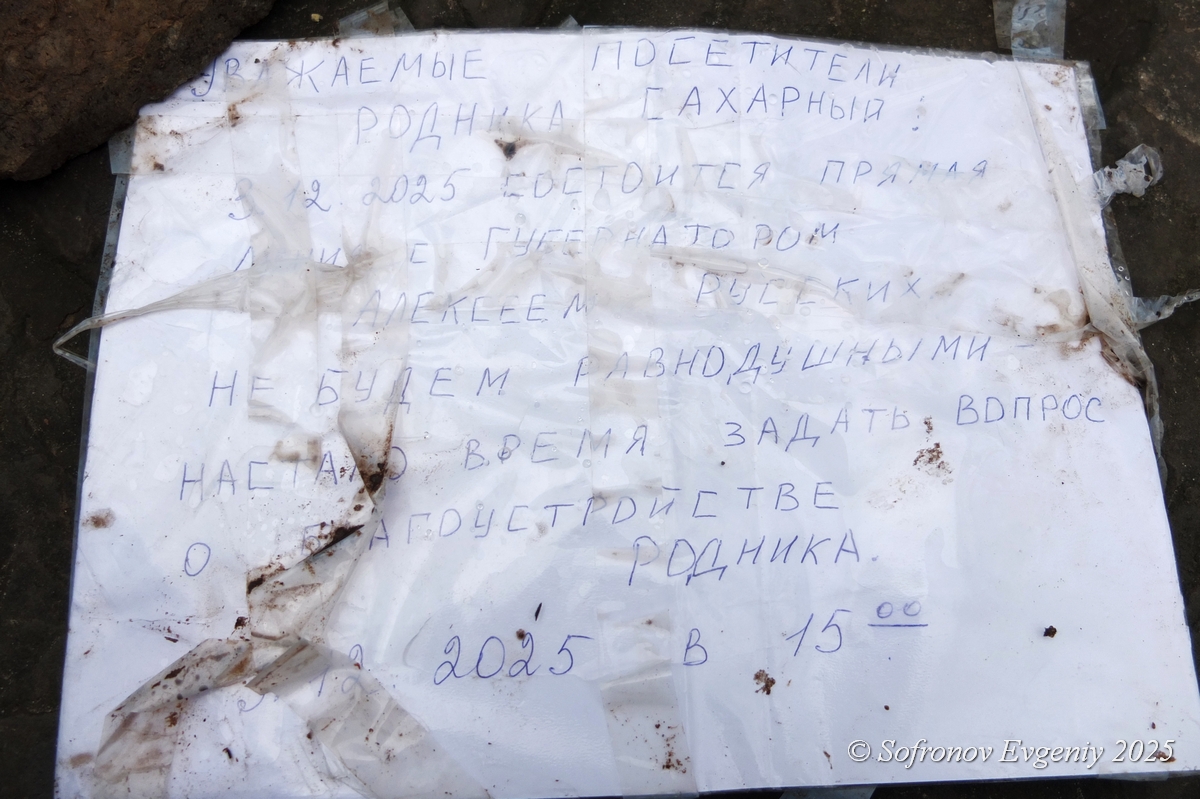 УВАЖАЕМЫЕ ПОСЕТИТЕЛИ
РОДНИКА САХАРНЫЙ!
3.12.2025 СОСТОИТСЯ ПРЯМАЯ
ЛИНИЯ С ГУБЕРНАТОРОМ
АЛЕКСЕЕМ РУССКИХ
НЕ БУДЕМ РАВНОДУШНЫМИ -
НАСТАЛО ВРЕМЯ ЗАДАТЬ ВОПРОС
О БЛАГОУСТРОЙСТВЕ
РОДНИКА.
3 12 2025 В 15 00
© Sofronov Evgeniy 2025